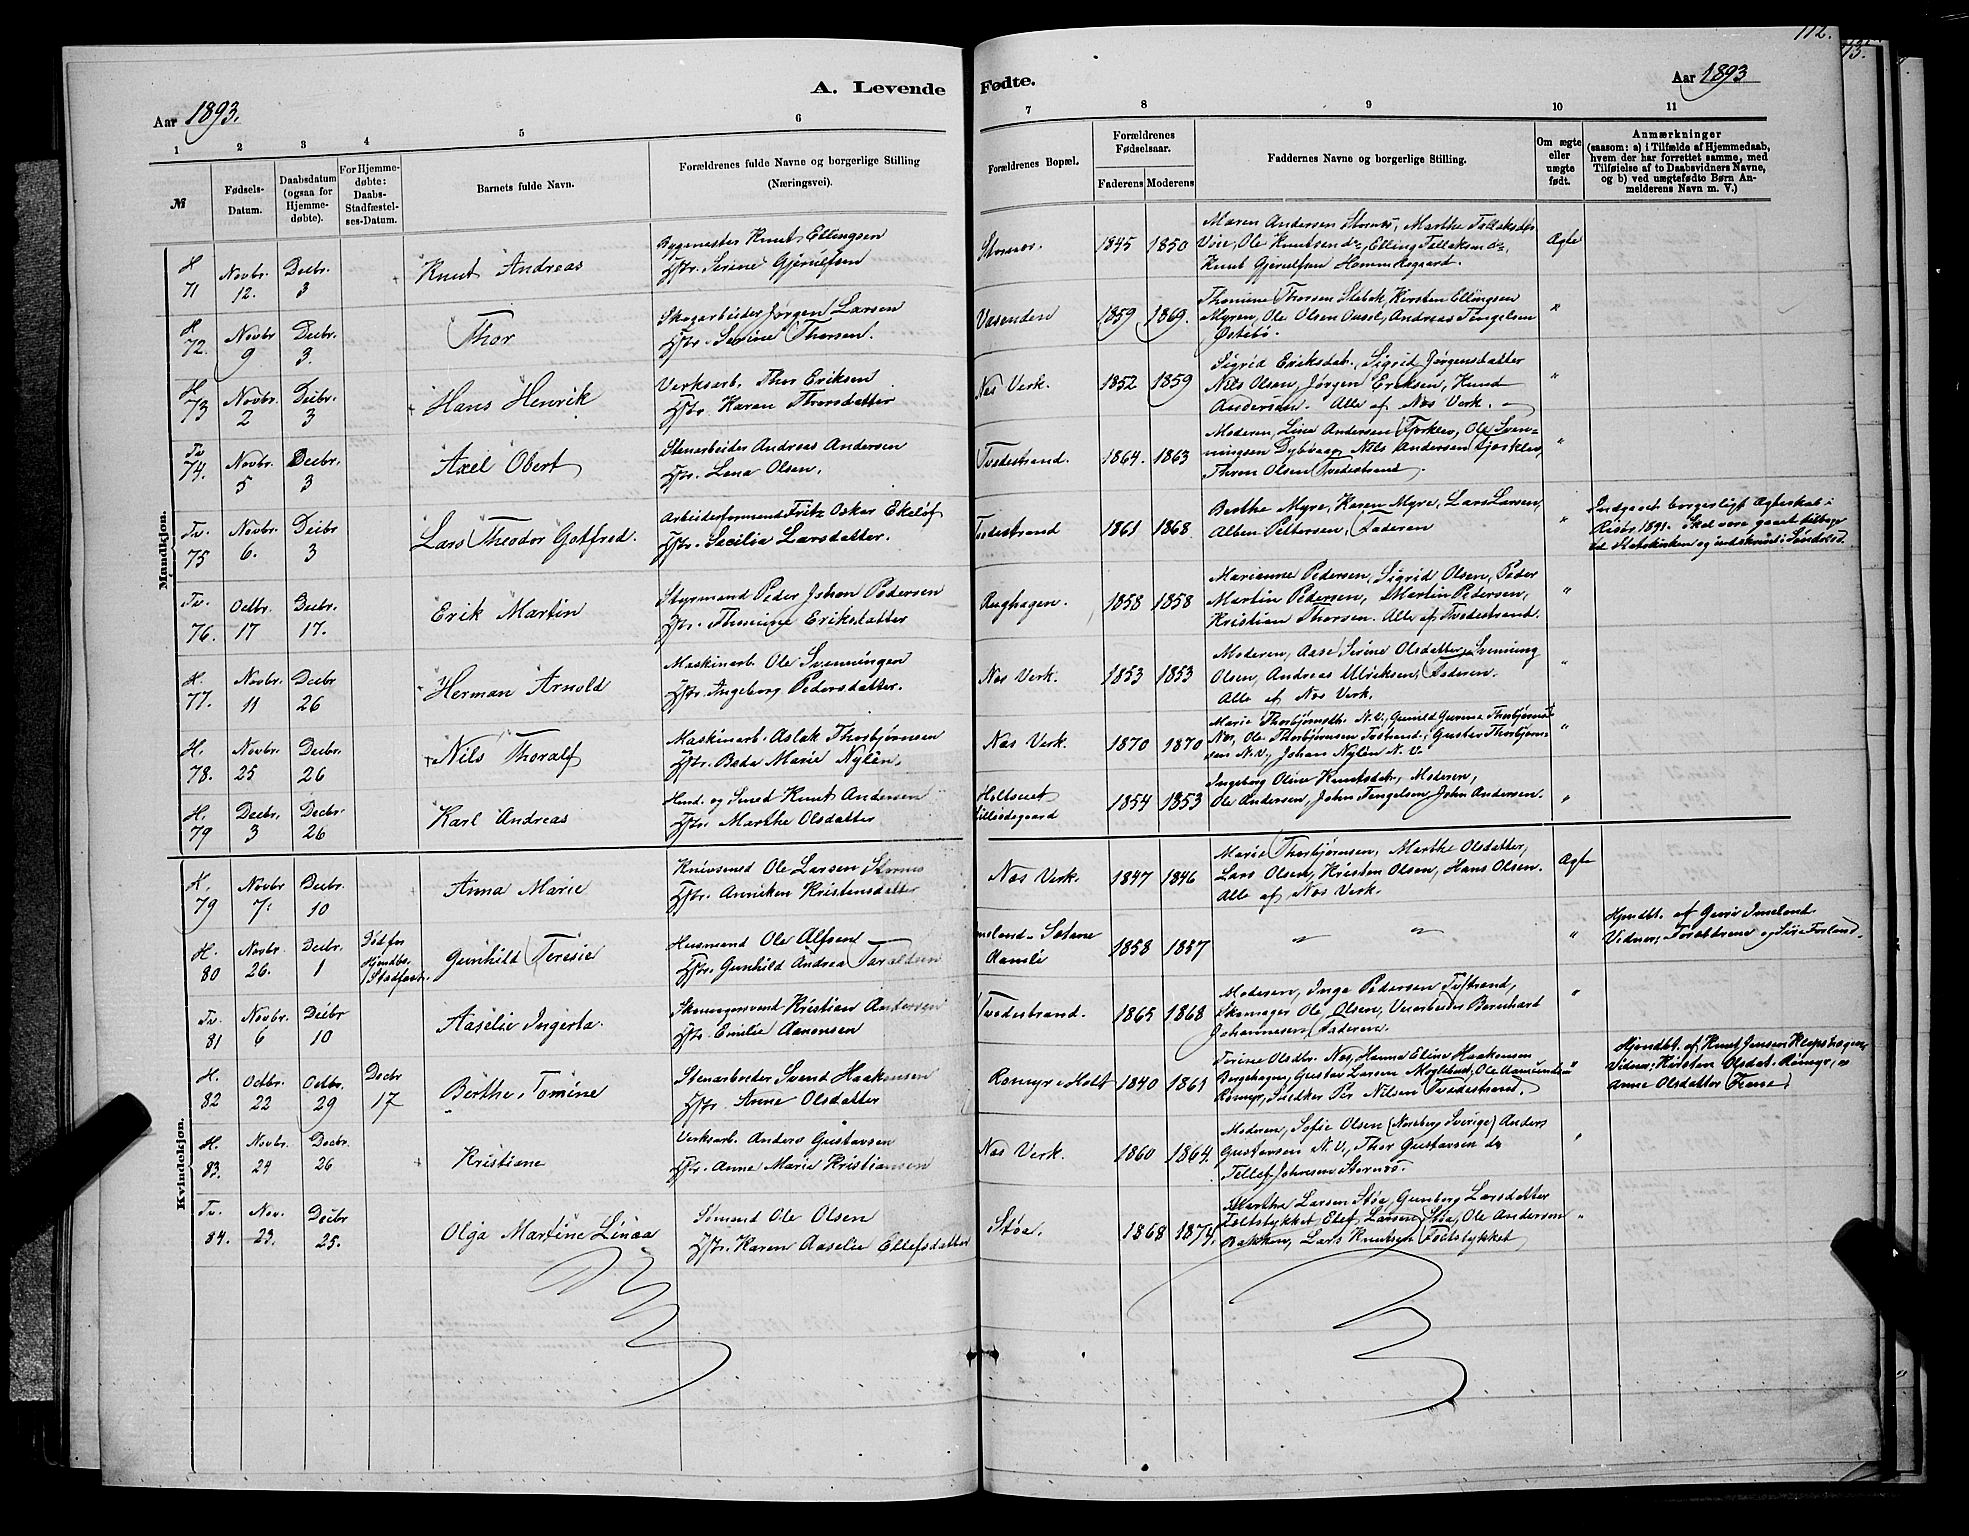 112.
A. Levende Fødte.
Aar 1893.
Aar 1893
1 2 3 4 5 6 7 8 9 10 11
№
Fødsels-Datum.
Daabsdatum (ogsaa for Hjemme-døbte).
For Hjemme-døbte: Daabs-Stadfæstel-ses-Datum.
Barnets fulde Navn.
Forældrenes fulde Navne og borgerlige Stilling (Næringsvei).
Forældrenes Bopæl.
Forældrenes Fødselsaar.
Faderens Moderens
Faddernes Navne og borgerlige Stilling.
Om ægte eller uægte født.
Anmærkninger (saasom: a) i Tilfælde af Hjemmedaab, hvem der har forrettet samme, med Tilføielse af to Daabsvidners Navne, og b) ved uægtefødte Børn Anmelderens Navn m. V.)
Mandkjøn.
H. 71 Novbr. 12. Decbr. 3 Knut Andreas
Bygmester Knut Ellingsen
Hstr. Serine Gjerulfsen
Stornes. 1845 1850
Maren Andersen Stornes, Marthe Tellaksdtr
Voie, Ole Knutsen do, Elling Tellaksen do,
Knut Gjerulfsen Hommesgaard.
Ægte
H. 72. Novbr 9 Decbr. 3. Thor
Skogarbeider Jørgen Larsen
Hstr. Serine Thorsen.
Vasenden 1859 1869.
Thomine Thorsen Stebek, Kirsten Ellingsen
Myren, Ole Olsen Oasel, Andreas Tengelsen
Østebø.
"
H. 73 Novbr. 2 Decbr. 3 Hans Henrik
Verksarb. Thor Eriksen
Hstr. Karen Thorsdatter
Nes Verk. 1852 1859
Sigrid Eriksdat., Sigrid Jørgensdatter
Nils Olsen, Jørgen Eriksen, Knud
Andersen. Alle af Nes Verk.
"
Tv 74. Novbr. 5 Decbr. 3 Axel Obert
Stenarbeider Andreas Andersen
Hstr. Lena Olsen.
Tvedestrand. 1864. 1863
Moderen, Line Andersen Fjorklev, Ole Sven-
ningsen Dybvaag, Nils Andersen Fjorklev,
Thron Olsen Tvedestrand.
"
Tv. 75 Novbr. 6. Decbr 3 Lars Theodor Gotfred.
Arbeidsformand Fritz Oskar Ekeløf
Hstr. Secilia Larsdatter.
Tvedestrand 1861 1868
Berthe Myre, Karen Myre, Lars Larsen,
Alben Pettersen, Faderen
"
Indgaaet borgerligt Ægteskab i
Risør 1891. Skal være gaaet tilbage
til Statskirken og indskrevet i
Tv. 76. Octbr. 17 Decbr. 17. Erik Martin
Styrmand Peder Johan Pedersen
Hstr. Thomine Eriksdatter
Rughagen. 1858 1858
Marianne Pedersen, Sigrid Olsen, Peder
Martin Pedersen, Martin Pedersen,
Kristian Thorsen. Alle af Tvedestrand.
"
H. 77. Novbr. 11 Decbr 26 Herman Arnold
Maskinarb. Ole Svenningen
Hstr. Ingeborg Pedersdatter.
Nes Verk. 1853 1853
Moderen, Aase Serine Olsdatter, Svenning
Olsen, Andreas Ulriksen, Faderen.
Alle af Nes Verk.
"
H. 78. Novbr. 25 Decbr. 26 Nils Thoralf
Maskinarb. Aslak Thorbjørnsen
Hstr. Beda Marie Nylén.
Nes Verk. 1870 1870
Marie Thorbjørnsdtr. N.V., Gunild Gurine Thorbjørnsd
Nes, Ole Thorbjørnsen Tvstrand, Gustav Thorbjørn-
sen N.V., Johan Nylén N.V.
"
H. 79 Decbr. 3 Decbr. 26 Karl Andreas
Husd. og Smed Knut Andersen
Hstr. Marthe Olsdatter
Holtseiet
Lilleødegaard 1854 1853
Ingeborg Oline Knutsdat., Moderen,
Ole Andersen, John Tengelsen, John Andersen.
"
Kvindekjøn.
H. 79 Novbr 7. Decbr. 10 Anna Marie
Knivsmed Ole Larsen Stornes
Hstr. Anniken Kristensdatter
Nes Verk. 1847 1846
Marie Thorbjørnsen, Marthe Olsdatter,
Lars Olsen, Kristen Olsen, Hans Olsen.
Alle af Nes Verk.
Ægte
H. 80 Novbr. 26. Decbr. 1 Død før Hjmdbs. Stadfæst. Gunhild Teresie
Husmand Ole Alfsen
Hstr. Gunhild Andrea Taraldsen
Aamli 1858 1857
" "
"
Hjmdbt. af Guri Imeland.
Vidner, og Siri Forland.
Tv. 81 Novbr. 6 Decbr 10 Aaselie Ingerta.
Skomagersvend Kristian Andersen
Hstr. Emilie Aanonsen
Tvedestrand. 1865 1868
Moderen, Inga Pedersen Tvstrand,
Skomager Ole Olsen, Veiarbeider Bernhart
Johannesen, Faderen.
"
H. 82 Octbr. 22 Octbr. 29 Decbr 17 Berthe Tomine
Stenarbeider Svend Haakensen
Hstr. Anne Olsdatter
Romyr i Holt 1840 1861
Torine Olsdtr. Nes, Hanna Eline Haakensen
Bergehagen, Gustav Larsen Møglebust, Ole Aamundsen
Romyr, Snedker Per Nilsen Tvedestrand.
"
Hjmdbt. af Knut Jensen
Vidner: Kirsten Olsdat. Romyr, og
Anne Olsdatter Fiane.
H. 83. Novbr. 24 Decbr. 26 Kristiane
Verksarb. Anders Gustavsen
Hstr. Anne Marie Kristiansen
Nes Verk. 1860 1864.
Moderen, Sofie Olsen (Noreberg Sverige) Anders
Gustavsen N.V., Thor Gustavsen do
Tellef Johnsen Stornes.
"
Tv. 84. Nov. 23. Decbr 25. Olga Martine Linaa
Sømand Ole Olsen
Hstr. Karen Aaselie Ellefsdatter
Støa. 1868 1874.
Marthe Larsen Støa, Gunborg Larsdatter
Toltstykket, Elef Larsen Støa, Ole Andersen
Bakken, Lars Knutsen Toltstykket
"